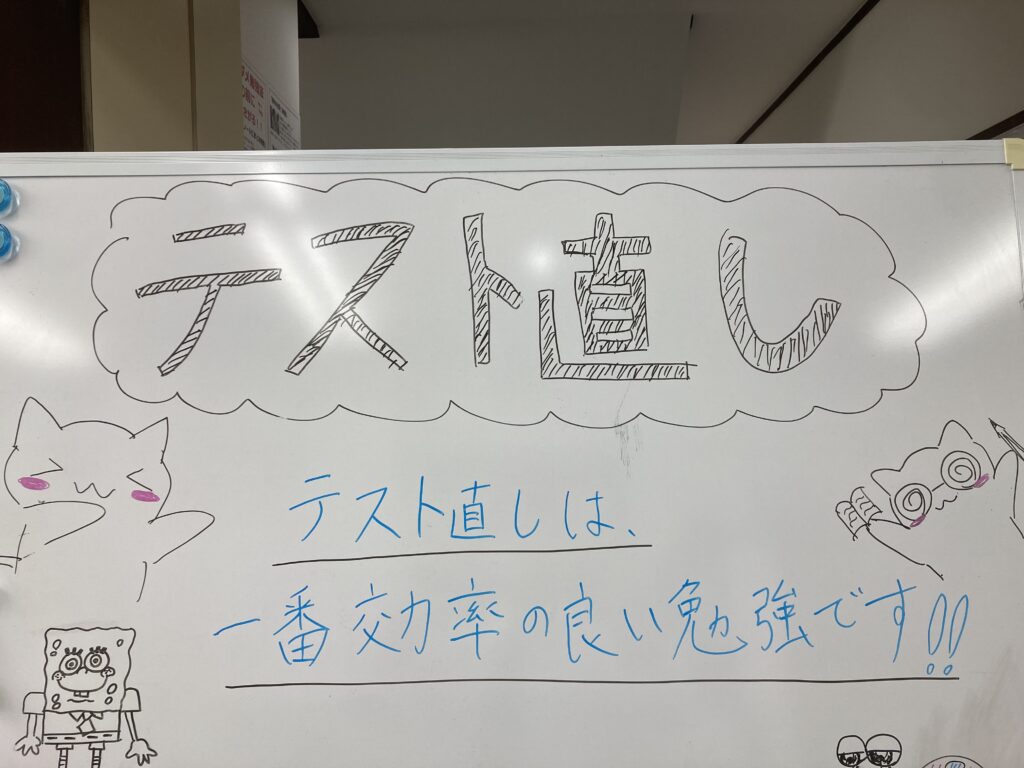 テスト直し
テスト直しは、
一番効率の良い勉強です!!